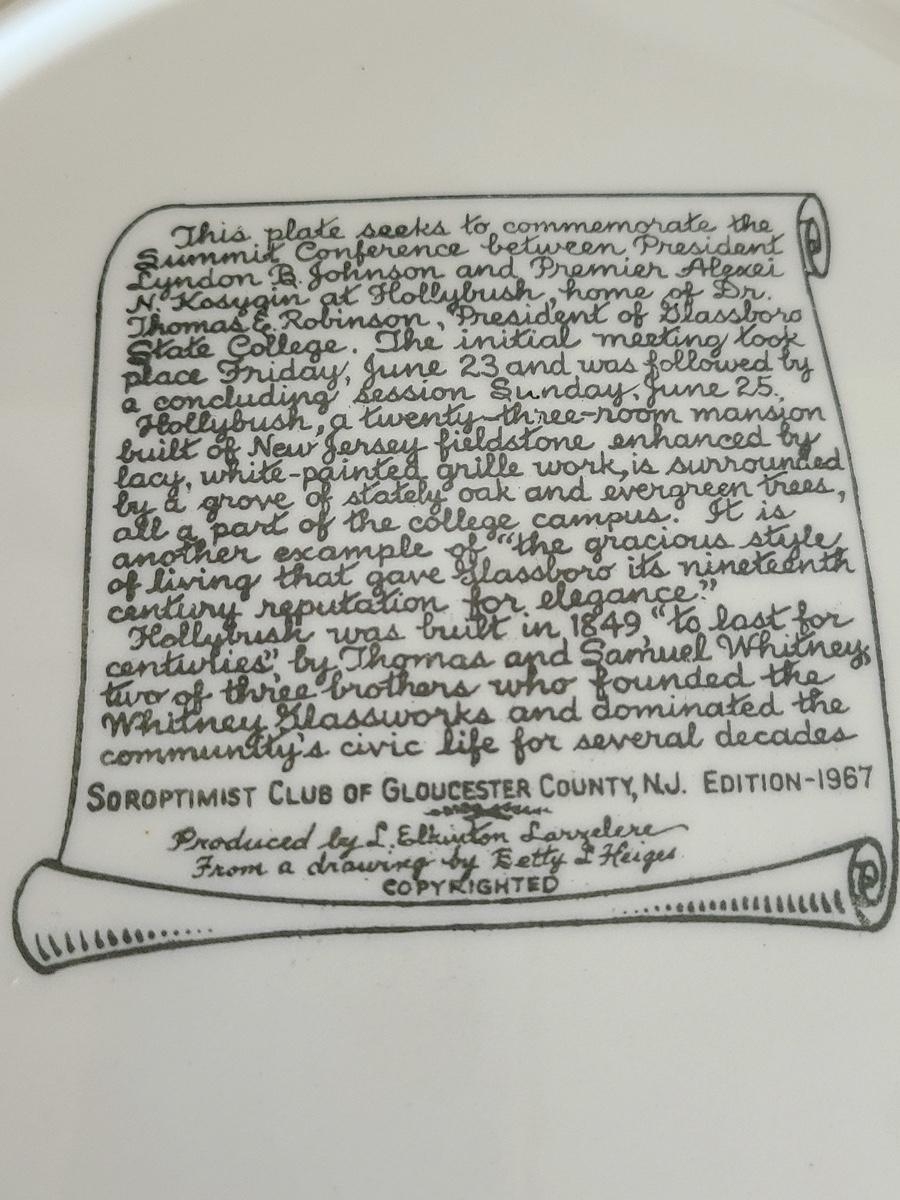 This plate seeks to commemorate the
Summit Conference between President
Lyndon B. Johnson and Premier Alexei
N. Kosygin at Hollybush, home of Dr.
Thomas E. Robinson, President of Glassboro
State College. The initial meeting took
place Friday, June 23 and was followed by
a concluding session Sunday, June 25.
Hollybush, a twenty-three-room mansion
built of New Jersey fieldstone enhanced by
lacy, white-painted grille work, is surrounded
by a grove of stately oak and evergreen trees,
all a part of the college campus. It is
another example of "the gracious style
of living that gave Glassboro its nineteenth
century reputation for elegance."
Hollybush was built in 1849 "to last for
centuries", by Thomas and Samuel Whitney,
two of three brothers who founded the
Whitney Glassworks and dominated the
community's civic life for several decades
SOROPTIMIST CLUB OF GLOUCESTER COUNTY, N.J. EDITION-1967
Produced by L. Elkinton Larzelere
From a drawing by Betty L Heiges
COPYRIGHTED